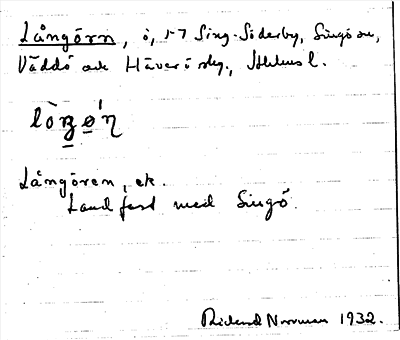 Långörn, ö, i Sing-Söderby, Singö sn,
Väddö och Häverö skg., Sthlms l.
lòŋǝ́n
Långören, ek.
Land fast med Singö.
Rickard Norrman 1932.